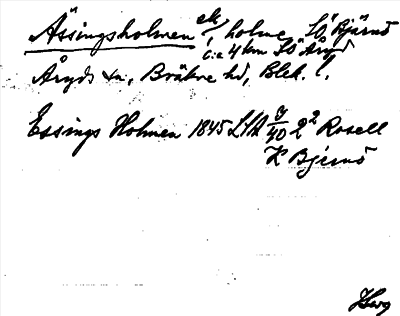 Ässingsholmen ek/, holme, SÖ Bjärnö
c:a 4 km SÖ Åryd
Åryds sn, Bräkne hd, Blek. l.
Essings Holmen 1845 LSA 7/40 2² Rosell
K Bjernö